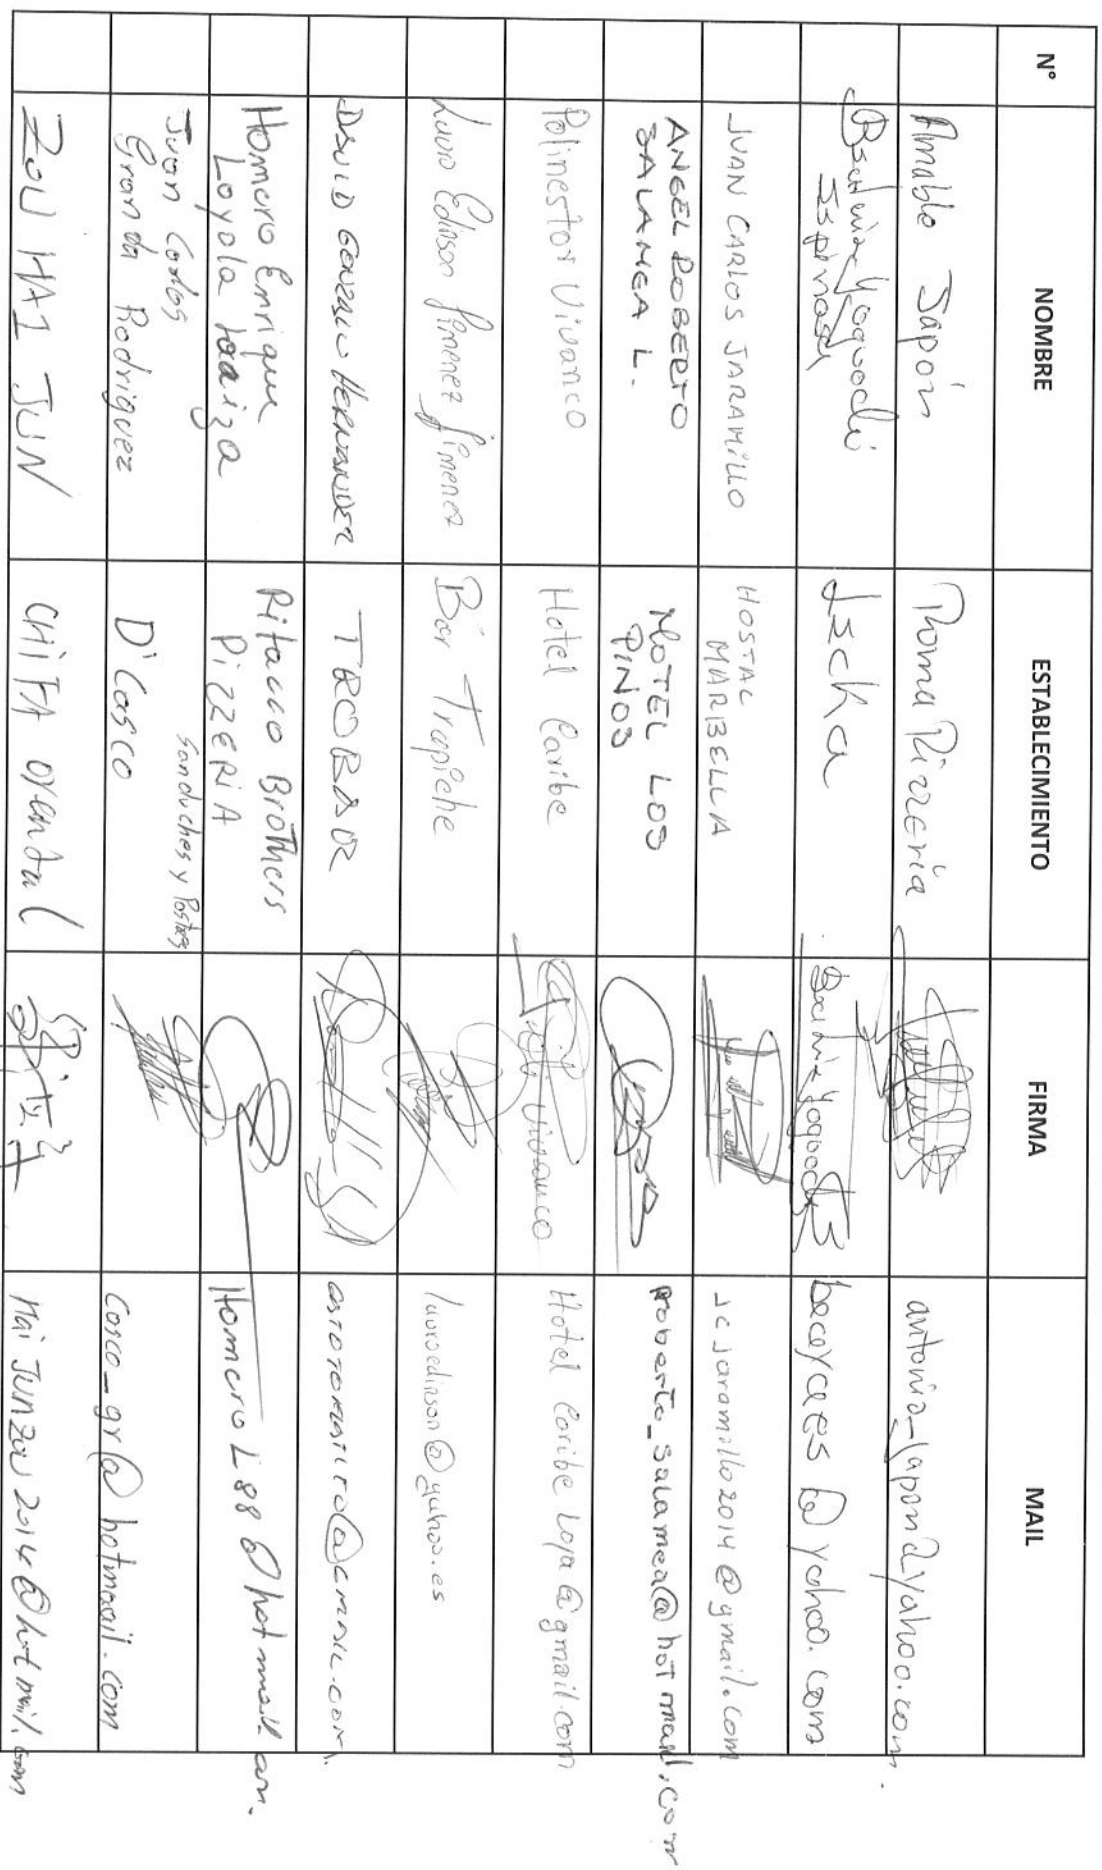 N° NOMBRE ESTABLECIMIENTO FIRMA MAIL
Amable Japón Roma Pizzería antonio_japon@yahoo.com.
Espinosa Jecka becayces@yahoo.com
JUAN CARLOS JARAMILLO HOSTAL MARBELLA jcjaramillo2014@gmail.com
ANGEL ROBERTO SALAMEA L. MOTEL LOS PINOS roberto_salamea@hotmail.com
Polimestor Vivanco Hotel Caribe Vivanco Hotel Caribe Loja@gmail.com
Lauro Edinson Jimenez Jimenez Bar Trapiche lauroedinson@yahoo.es
DAVID GONZALO HERNANDEZ TROBAR
Homero Enrique Loyola Loaiza Ritacco Brothers PizzERIA Homero L88@hotmail.com.
Juan Carlos Granda Rodriguez D'Casco Sanduches y Postres Casco_gr@hotmail.com
ZOU HAI JUN CHIFA Oriental Hai Junzou2014@hotmail.com